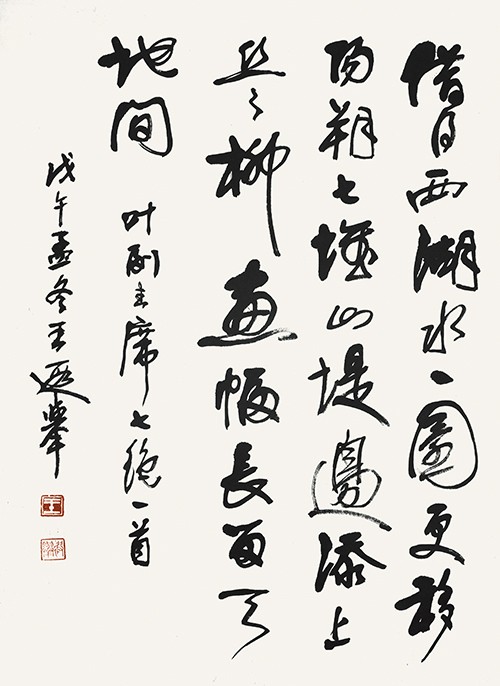 借得西湖水一圜更移
陽朔七堆山堤邊添上
丝々柳畫幅長留天
地間
叶副主席七絕一首
戊午孟冬王遐舉